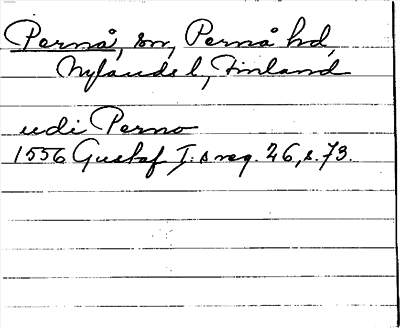 Pernå, sn, Pernå hd,
Nylands l, Finland
udi Perno
1556 Gustaf I:s reg. 26, s. 73.